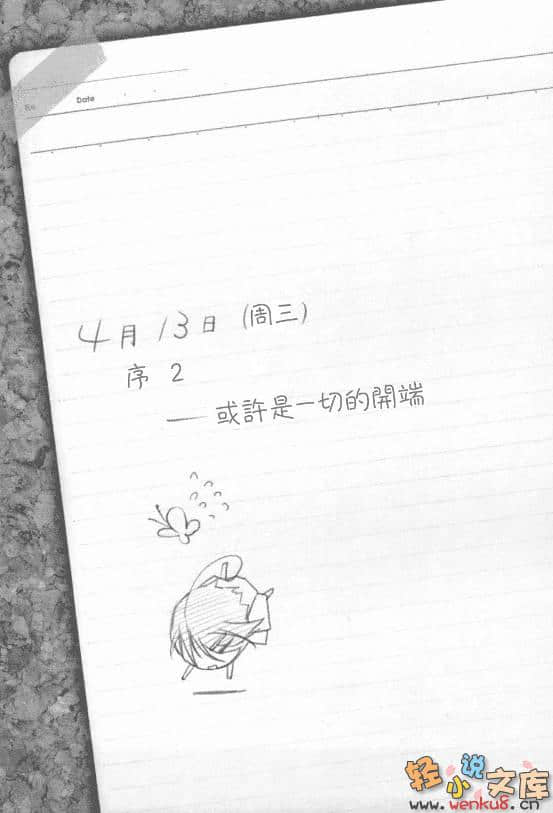 No.
Date
4月13日(周三)
序 2
——或許是一切的開端
轻小说文库
www.wenku8.cn